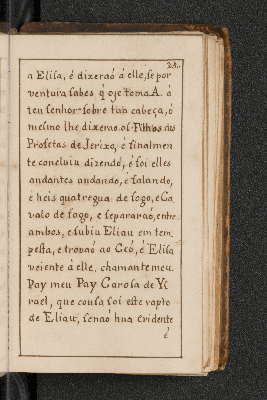 28.
a Elisa, é dixeraó á elle, se por
ventura sabes q̃ oje toma A. á
teu senhor sobre tua cabeça, é
mesmo lhe dixeraó os Filhos dos
Profetas de Jerixo, é finalmen
te concluiu dizendo, é foi elles
andantes andando, é falando,
é heis quatregua de fogo, é Ca
valo de fogo, é separaraó, entre
ambos, e subiu Eliau em tem
pesta, e trovaó ao Ceó, é Elisa
veiente á elle, chamante meu
Pay meu Pay Carosa de Ys
rael, que cousa foi este rapto
de Eliau, senaó hua evidente
é